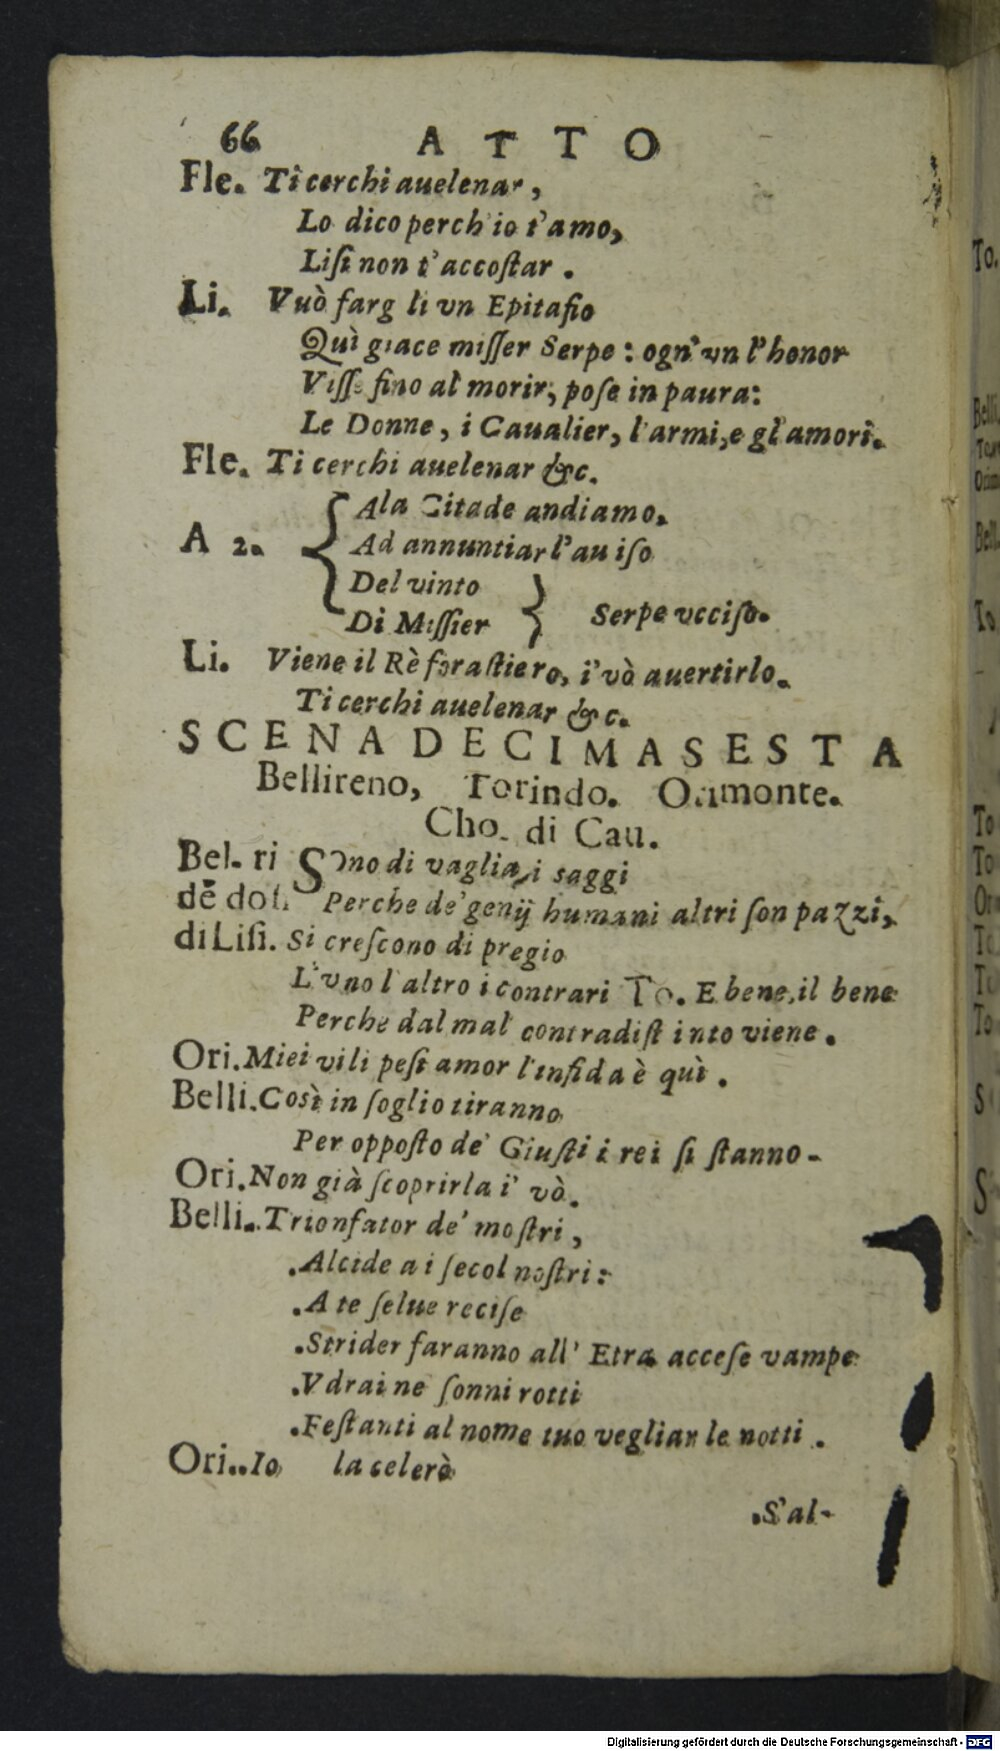 66 ATTO
Fle. Ti cerchi auelenar,
Lo dico perch'io t'amo,
Liſi non t'accoſtar.
Li. Vuò fargli vn Epitafio
Quì giace miſſer Serpe: ogn'vn l'honor
Viſſe fino al morir, poſe in paura:
Le Donne, i Caualier, l'armi, e gl'amori.
Fle. Ti cerchi auelenar &c.
Ala Citade andiamo.
A 2. Ad annuntiar l'auiſo
Del vinto
Di Miſſier } Serpe vcciſo.
Li. Viene il Rè foraſtiero, i'vò auertirlo.
Ti cerchi auelenar &c.
SCENA DECIMASESTA
Bellireno, Torindo. Orimonte.
Cho. di Cau.
Bel. ri Sono di vaglia, i saggi
dẽ doſi Perche de' genij humani altri ſon pazzi,
di Liſi. Si creſcono di pregio
L'vno l'altro i contrari To. E bene, il bene
Perche dal mal contradiſtinto viene.
Ori. Miei vili peſi amor l'infida è quì.
Belli. Così in ſoglio tiranno
Per oppoſto de' Giuſti i rei ſi ſtanno-
Ori. Non già ſcoprirla i' vò.
Belli. Trionfator de' moſtri,
Alcide a i ſecol noſtri:
A te ſelue reciſe
Strider faranno all' Etra acceſe vampe
Vdrai ne ſonni rotti
Feſtanti al nome tuo vegliar le notti.
Ori. Io la celerò
S'al-
To.
Belli.
Digitalisierung gefördert durch die Deutsche Forschungsgemeinschaft - DFG